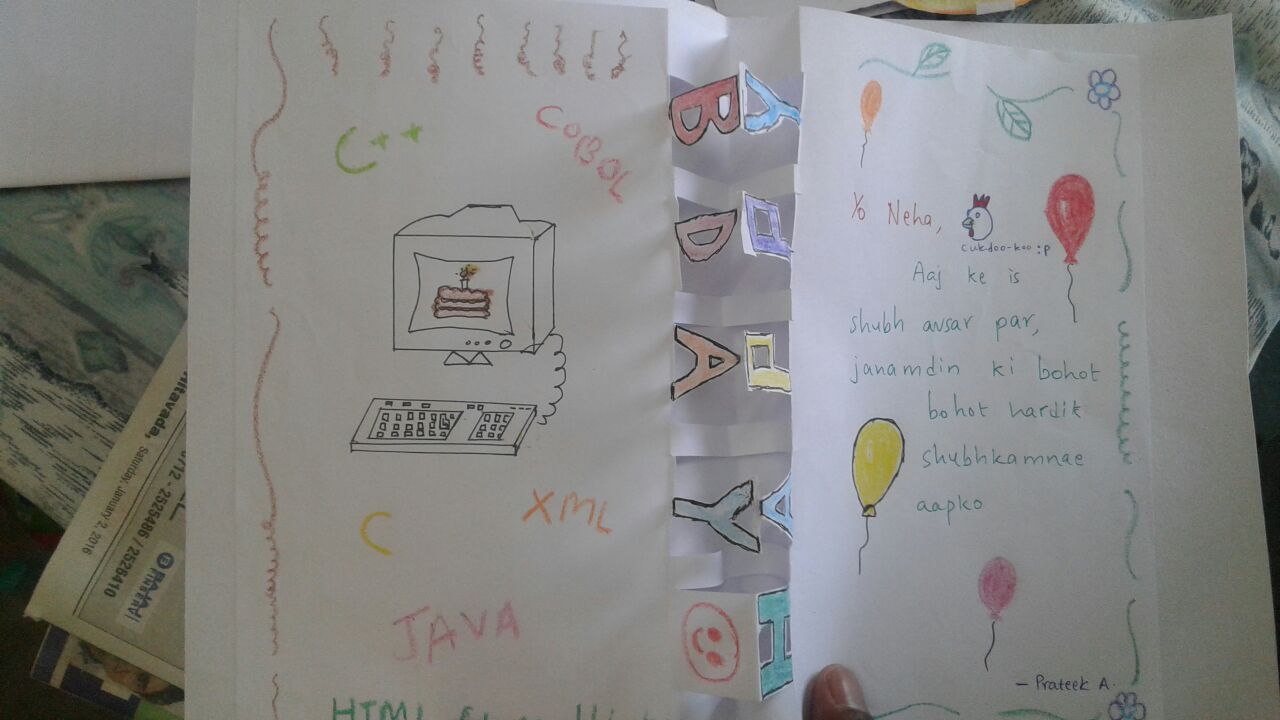 C++
COBOL
C
XML
JAVA
HTML
B
D
A
Y
H
A
P
P
Y
Yo Neha,
cukdoo-koo :p
Aaj ke is
shubh avsar par,
janamdin ki bohot
bohot hardik
shubhkamnae
aapko
— Prateek A.
Hitavada,
Saturday, January 2, 2016
0712 - 2525486 / 2528410